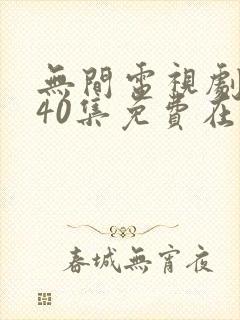 無間電視劇
40集免費在
春城無宵夜